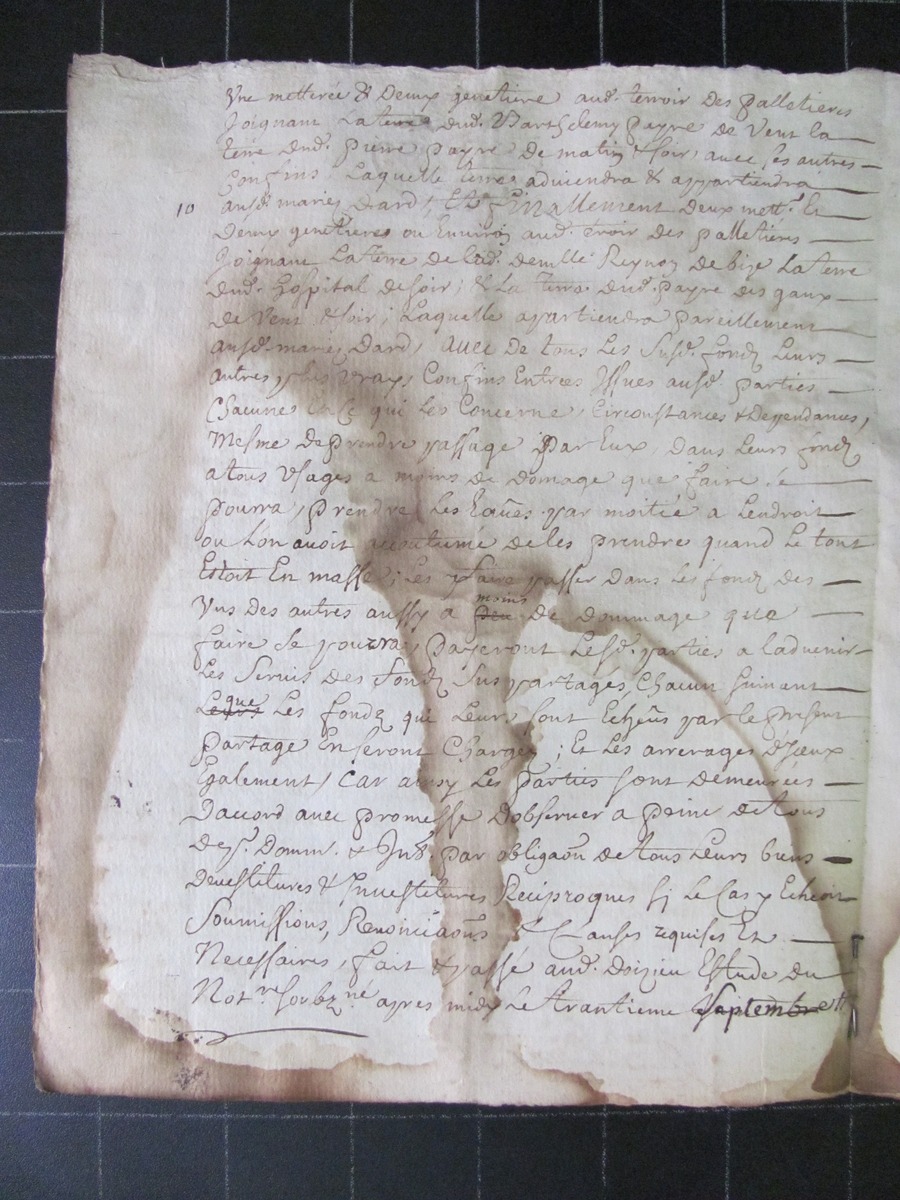 Une metterée & Demy genetiere aud.t terroir des palletieres
Joignant La terre dud. Barthelemy payre de Vent la
terre dud. Pierre payre De matin & soir, avec ses autres
Confins, Laquelle terre adviendra & appartiendra
10 ausd. mariés Dard, Et finallement Deux mett.s Et
Demy genetieres ou Environ aud. terroir des palletieres
Joignant La terre de lad. demlle Reynoz de bize La terre
dud. hospital de soir, & La terre dud. payre des gaux
de Vent & soir, Laquelle apartiendra pareillement
ausd. mariés Dard, avec de tous Les Susd. fondz Leurs
autres plus vrays Confins Entrées Issues ausd. parties
Chacunes En Ce qui Les Concerne, Circonstances & Dependances,
Mesme de prendre passage par Eux, dans Leurs fondz
a tous Usages a moins de domage que faire se
pourra, prendre Les Eaûes par moitié a Lendroit
ou Lon avoit accoutumé de les prendre quand Le tout
Estoit En masse, Les faire passer dans Les fondz des
Uns des autres aussy a peu moins de dommage que
faire se pourra, payeront Lesd. parties a ladvenir
Les Servis des fondz Sus partagés, Chacun Suivant
Leurs que Les fondz qui Leurs sont Echeûs par le present
partage En seront Chargez ; Et Les arrerages d'Iceux
Egalement, Car ainsy Les parties sont Demeurées
Daccord avec promesse Dobserver a peine de tous
Desp. Domm. & Int. par obliga͠on de tous Leurs biens
Devestitures & Investitures Reciproques si Le Cas y Echeoit
Soumissions, Renoncia͠ons & Clauses requises Et
Necessaires, fait & passé aud. Estude du
Not.re soubz.né apres midy Le trantieme Septembre